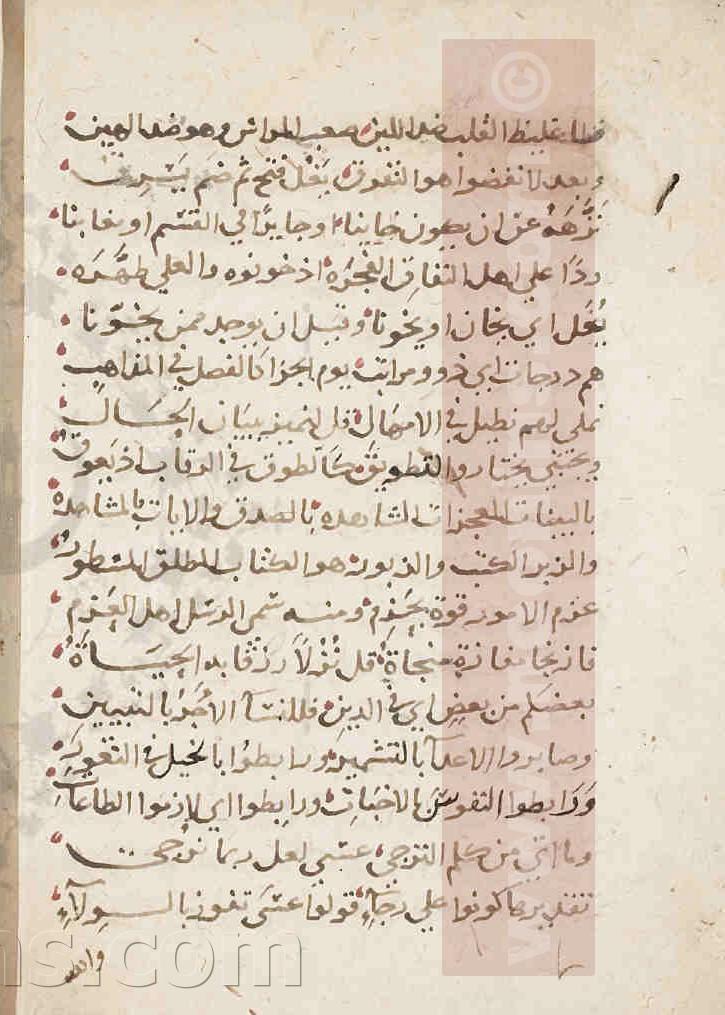 فظا غليظ القلب ضد اللين صعب المراس وهو ضد الهين
وبعد لانفضوا هو التفرق يغل فتح ثم ضم يسرق
نزهه عن ان يكون خاينا او جايرا في القسم او مغابنا
ردا علي اهل النفاق الفجره اذ خونوه والعلي طهره
يغل اي يخان او يخونا وقيل ان يوجد ممن يخونا
هم درجات اي ذوو مراتب يوم الجزا كالفصل في المذاهب
نملي لهم نطيل في الامهال قل ليميز ببيان الحال
ويجتبي يختار والتطويق كالطوق في الرقاب اذ يعوق
بالبينات المعجزات الشاهده بالصدق والايات بالمشاهده
والزبر الكتب والزبور هو الكتاب المطلق المسطور
عزم الامور قوة بحزم ومنه سمي الرسل اهل العزم
فاز نجا مفازة منجاة قل نزلا رزقا به الحياة
بعضكم من بعض اي في الدين فللنسآ الاجر بالتبيين
وصابروا الاعدآ بالتشمير ورابطوا بالخيل في الثغور
ورابطوا النفوس بالاخبات ورابطوا اي لازموا الطاعات
وما اتي من كلم الترجي عسي لعل ربما نرجي
تقديرها كونوا علي رجآء قولوا عسي تفوز بالسولآء
والله
ns.com
©